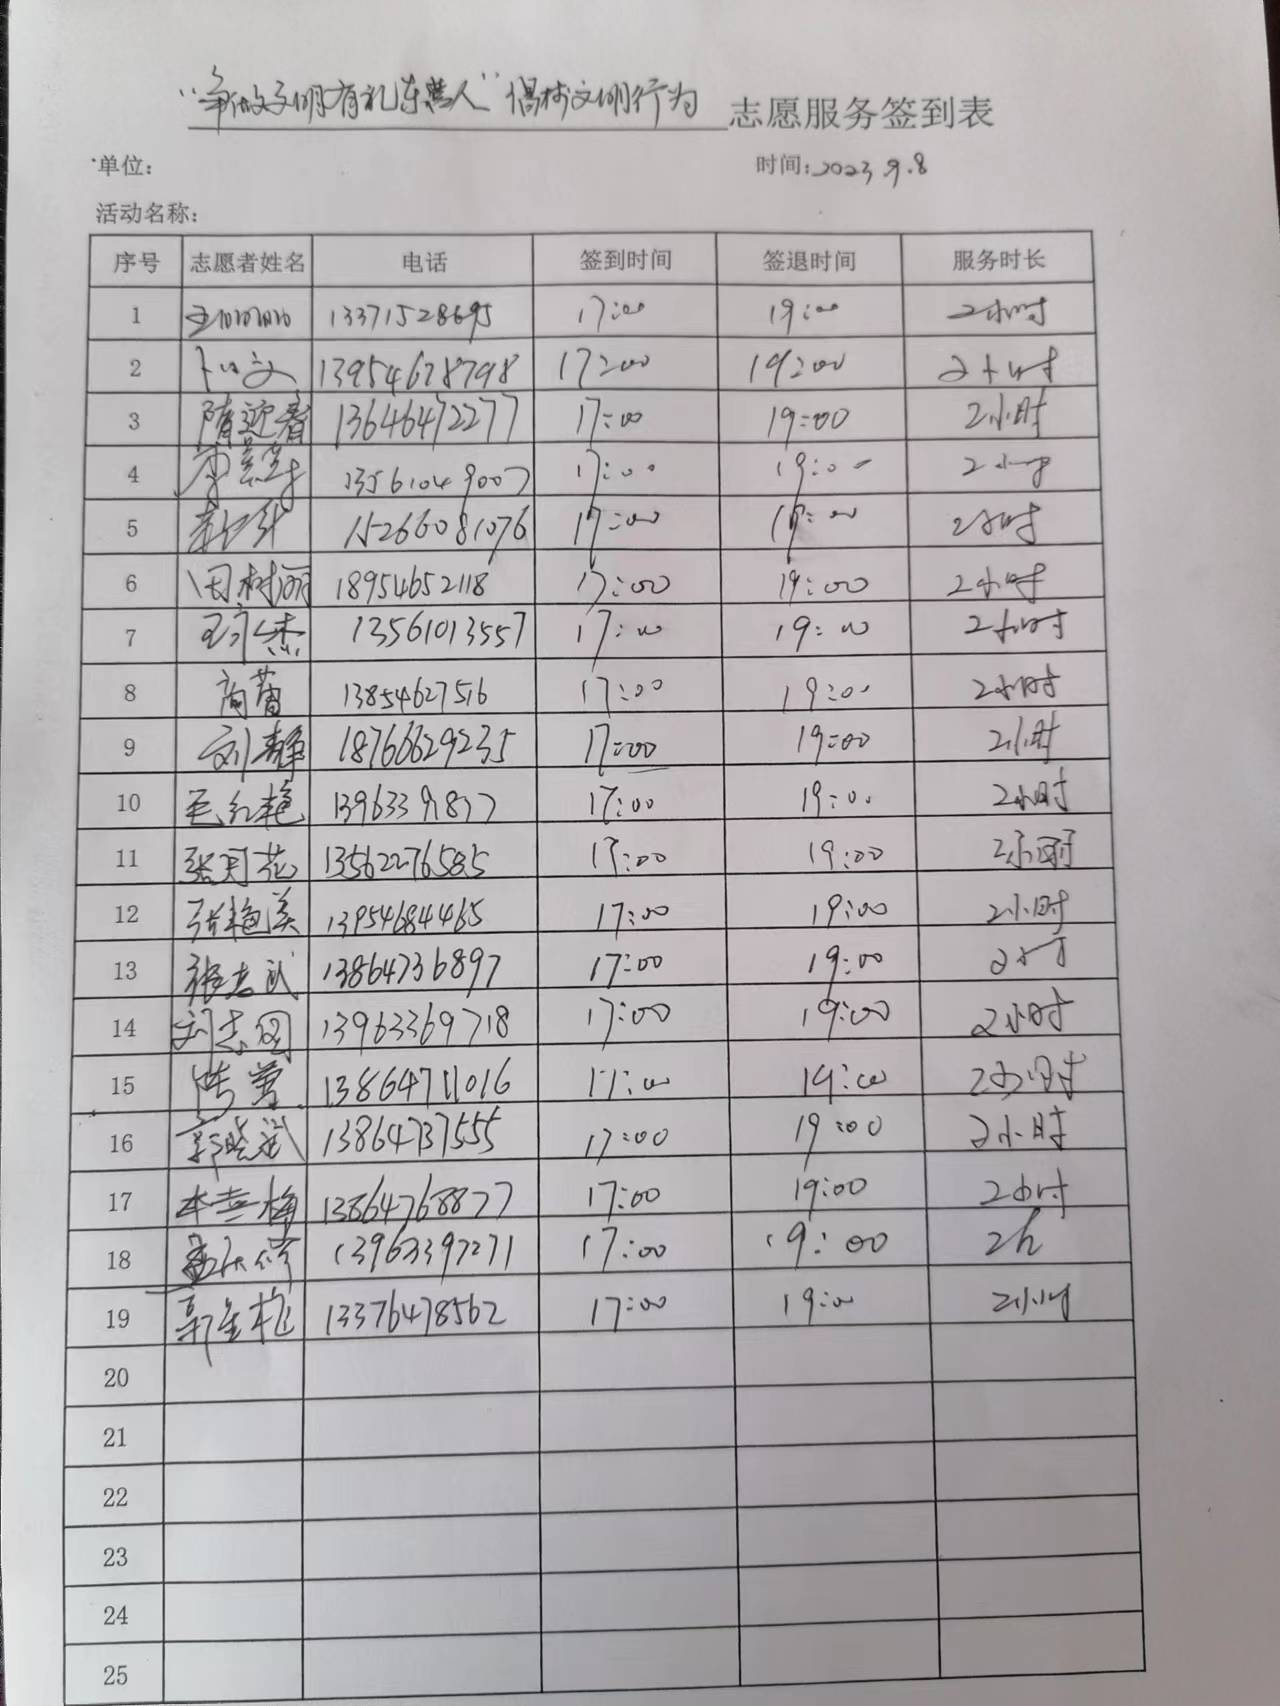 “争做文明有礼东营人”倡树文明行为 志愿服务签到表
单位：
时间：2023.9.8
活动名称：
序号 志愿者姓名 电话 签到时间 签退时间 服务时长
1 13371528695 17:00 19:00 2小时
2 13954678798 17:00 19:00 2小时
3 隋迎春 13646472277 17:00 19:00 2小时
4 13561049007 17:00 19:00 2小时
5 15266081076 17:00 19:00 2小时
6 田树丽 18954652118 17:00 19:00 2小时
7 13561013557 17:00 19:00 2小时
8 商蕾 13854627516 17:00 19:00 2小时
9 刘静 18766629235 17:00 19:00 2小时
10 毛红艳 13963391877 17:00 19:00 2小时
11 张月花 13562276585 17:00 19:00 2小时
12 张艳美 13954684465 17:00 19:00 2小时
13 张志武 13864736897 17:00 19:00 2小时
14 刘志国 13963369718 17:00 19:00 2小时
15 13864711016 17:00 19:00 2小时
16 郭晓斌 13864737555 17:00 19:00 2小时
17 13864768877 17:00 19:00 2小时
18 13963397271 17:00 19:00 2h
19 13376478562 17:00 19:00 2小时
20
21
22
23
24
25